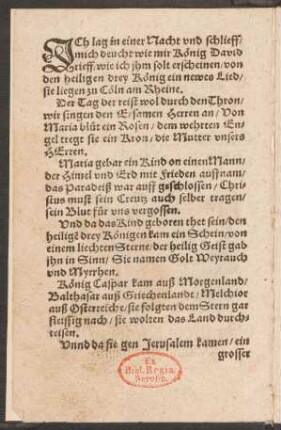 ICh lag in einer Nacht vnd schlieff/
mich deucht wie mir König David
rieff/ wie ich jhm solt erscheinen/ von
den heiligen drey König ein newes Lied/
sie liegen zu Cöln am Rheine.
Der Tag der reist wol durch den Thron/
wir singen den Ersamen Herren an/ Von
Maria blüt ein Rosen/ dem wehrten En-
gel tregt sie ein Kron/ die Mutter vnsers
HErren.
Maria gebar ein Kind on einen Mann/
der Himel vnd Erd mit Frieden auffnam/
das Paradeiß war auff geschlossen/ Chri-
stus must sein Creutz auch selber tragen/
sein Blut für vns vergossen.
Vnd da das Kind geboren thet sein/ den
heiligē drey Königen kam ein Schein/ von
einem liechten Sterne/ der heilig Geist gab
jhn in Sinn/ Sie namen Golt Weyrauch
vnd Myrrhen.
König Caspar kam auß Morgenland/
Balthasar auß Griechenlandt/ Melchior
auß Osterreiche/ sie folgten dem Stern gar
fleissig nach/ sie wolten das Land durch-
reisen.
Vnnd da sie gen Jerusalem kamen/ ein
grosser
Ex
Bibl. Regia
Berolin.